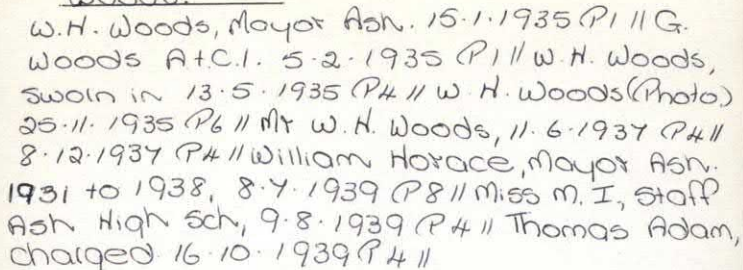 W.H. Woods, Mayor Ash. 15.1.1935 P1 // G.
Woods A+C.1. 5.2.1935 P1 // W.H. Woods,
Sworn in 13.5.1935 P4 // W.H. Woods (Photo)
25.11.1935 P6 // Mr W.H. Woods, 11.6.1937 P4 //
8.12.1937 P4 // William Horace, Mayor Ash.
1931 to 1938, 8.7.1939 P8 // Miss M.I, Staff
Ash High Sch, 9.8.1939 P4 // Thomas Adam,
charged 16.10.1939 P4 //